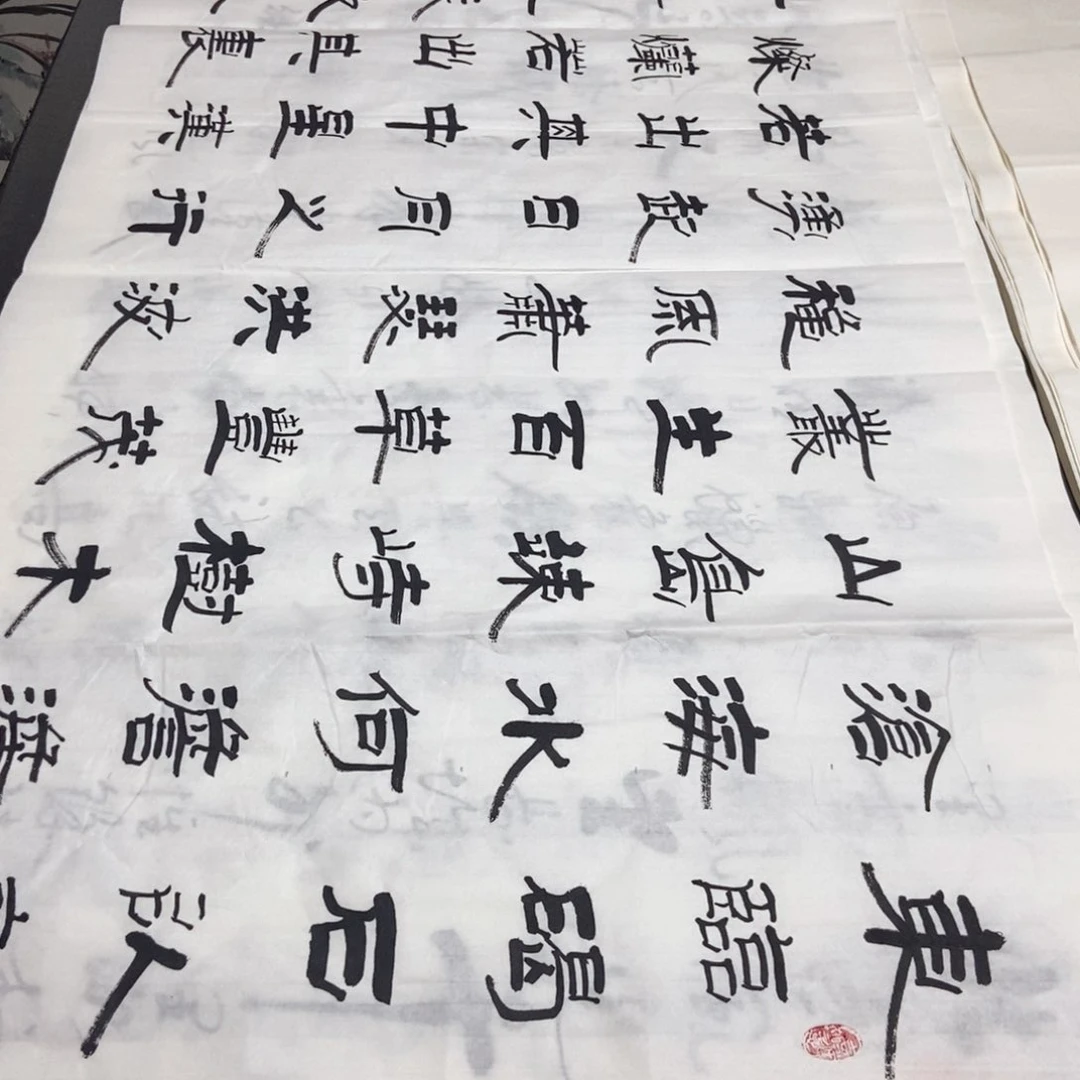 東臨碣石以
滄海水何澹澹
山島竦峙樹木
叢生百草豐茂
龝風蕭瑟洪波
湧起日月之行
若出其中星漢
燦爛若出其裏